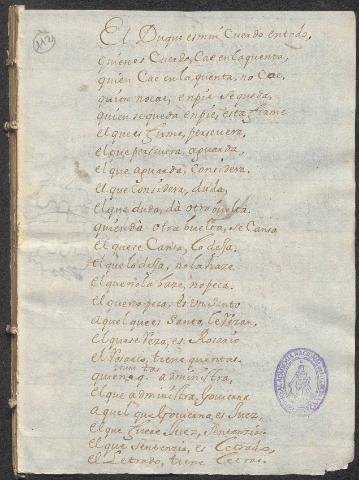 112
El Duque es mui Cuerdo en todo,
quien es Cuerdo, Cae en la quenta,
quien Cae en la quenta, no Cae,
quien no cae, en pie se queda,
quien se queda en pie, esta firme
el que es firme, persevera,
el que persevera, aguarda,
el que aguarda, Considera,
el que Considera, duda,
el que duda, da otra buelta,
quien da otra buelta, se Cansa
el que se Cansa, lo dexa,
el que lo dexa, no la haze
el que no la haze, no peca,
el que no peca, es un Santo
a quel que es Santo, le Rezan,
el que se Reza, es Rosario
el Rosario, tiene quentas
quien q. administra,
el que administra, Govierna
a quel que Govierna, es Juez,
el que fuere Juez, Sentencia
el que Sentencia, es Letrado,
el Letrado, tiene Letras